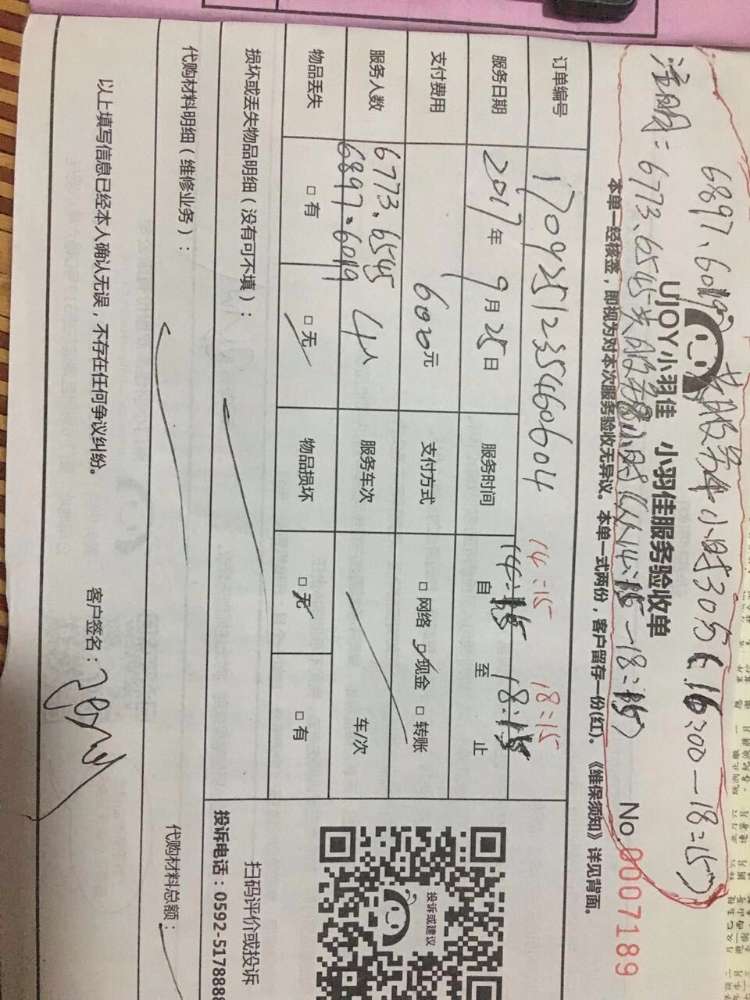 6897、6049
注明：6773、6545共服务4小时（从14：15—18：15）
UJOY小羽佳 小羽佳服务验收单
No 0007189
本单一经核签，即视为对本次服务验收无异议。本单一式两份，客户留存一份(红)。《维保须知》详见背面。
订单编号 170925123546060
14：15 18：15
服务日期 2017年9月25日 服务时间 自 至 止
支付费用 600元 支付方式 □网络 ☑现金 □转账
服务人数 6773、6545 6897、6049 4人 服务车次 车/次
物品丢失 □有 □无 物品损坏 □无 □有
损坏或丢失物品明细（没有可不填）：
代购材料明细（维修业务）： 代购材料总额：
以上填写信息已经本人确认无误，不存在任何争议纠纷。 客户签名：
投诉或建议
扫码评价或投诉
投诉电话：0592-5178888